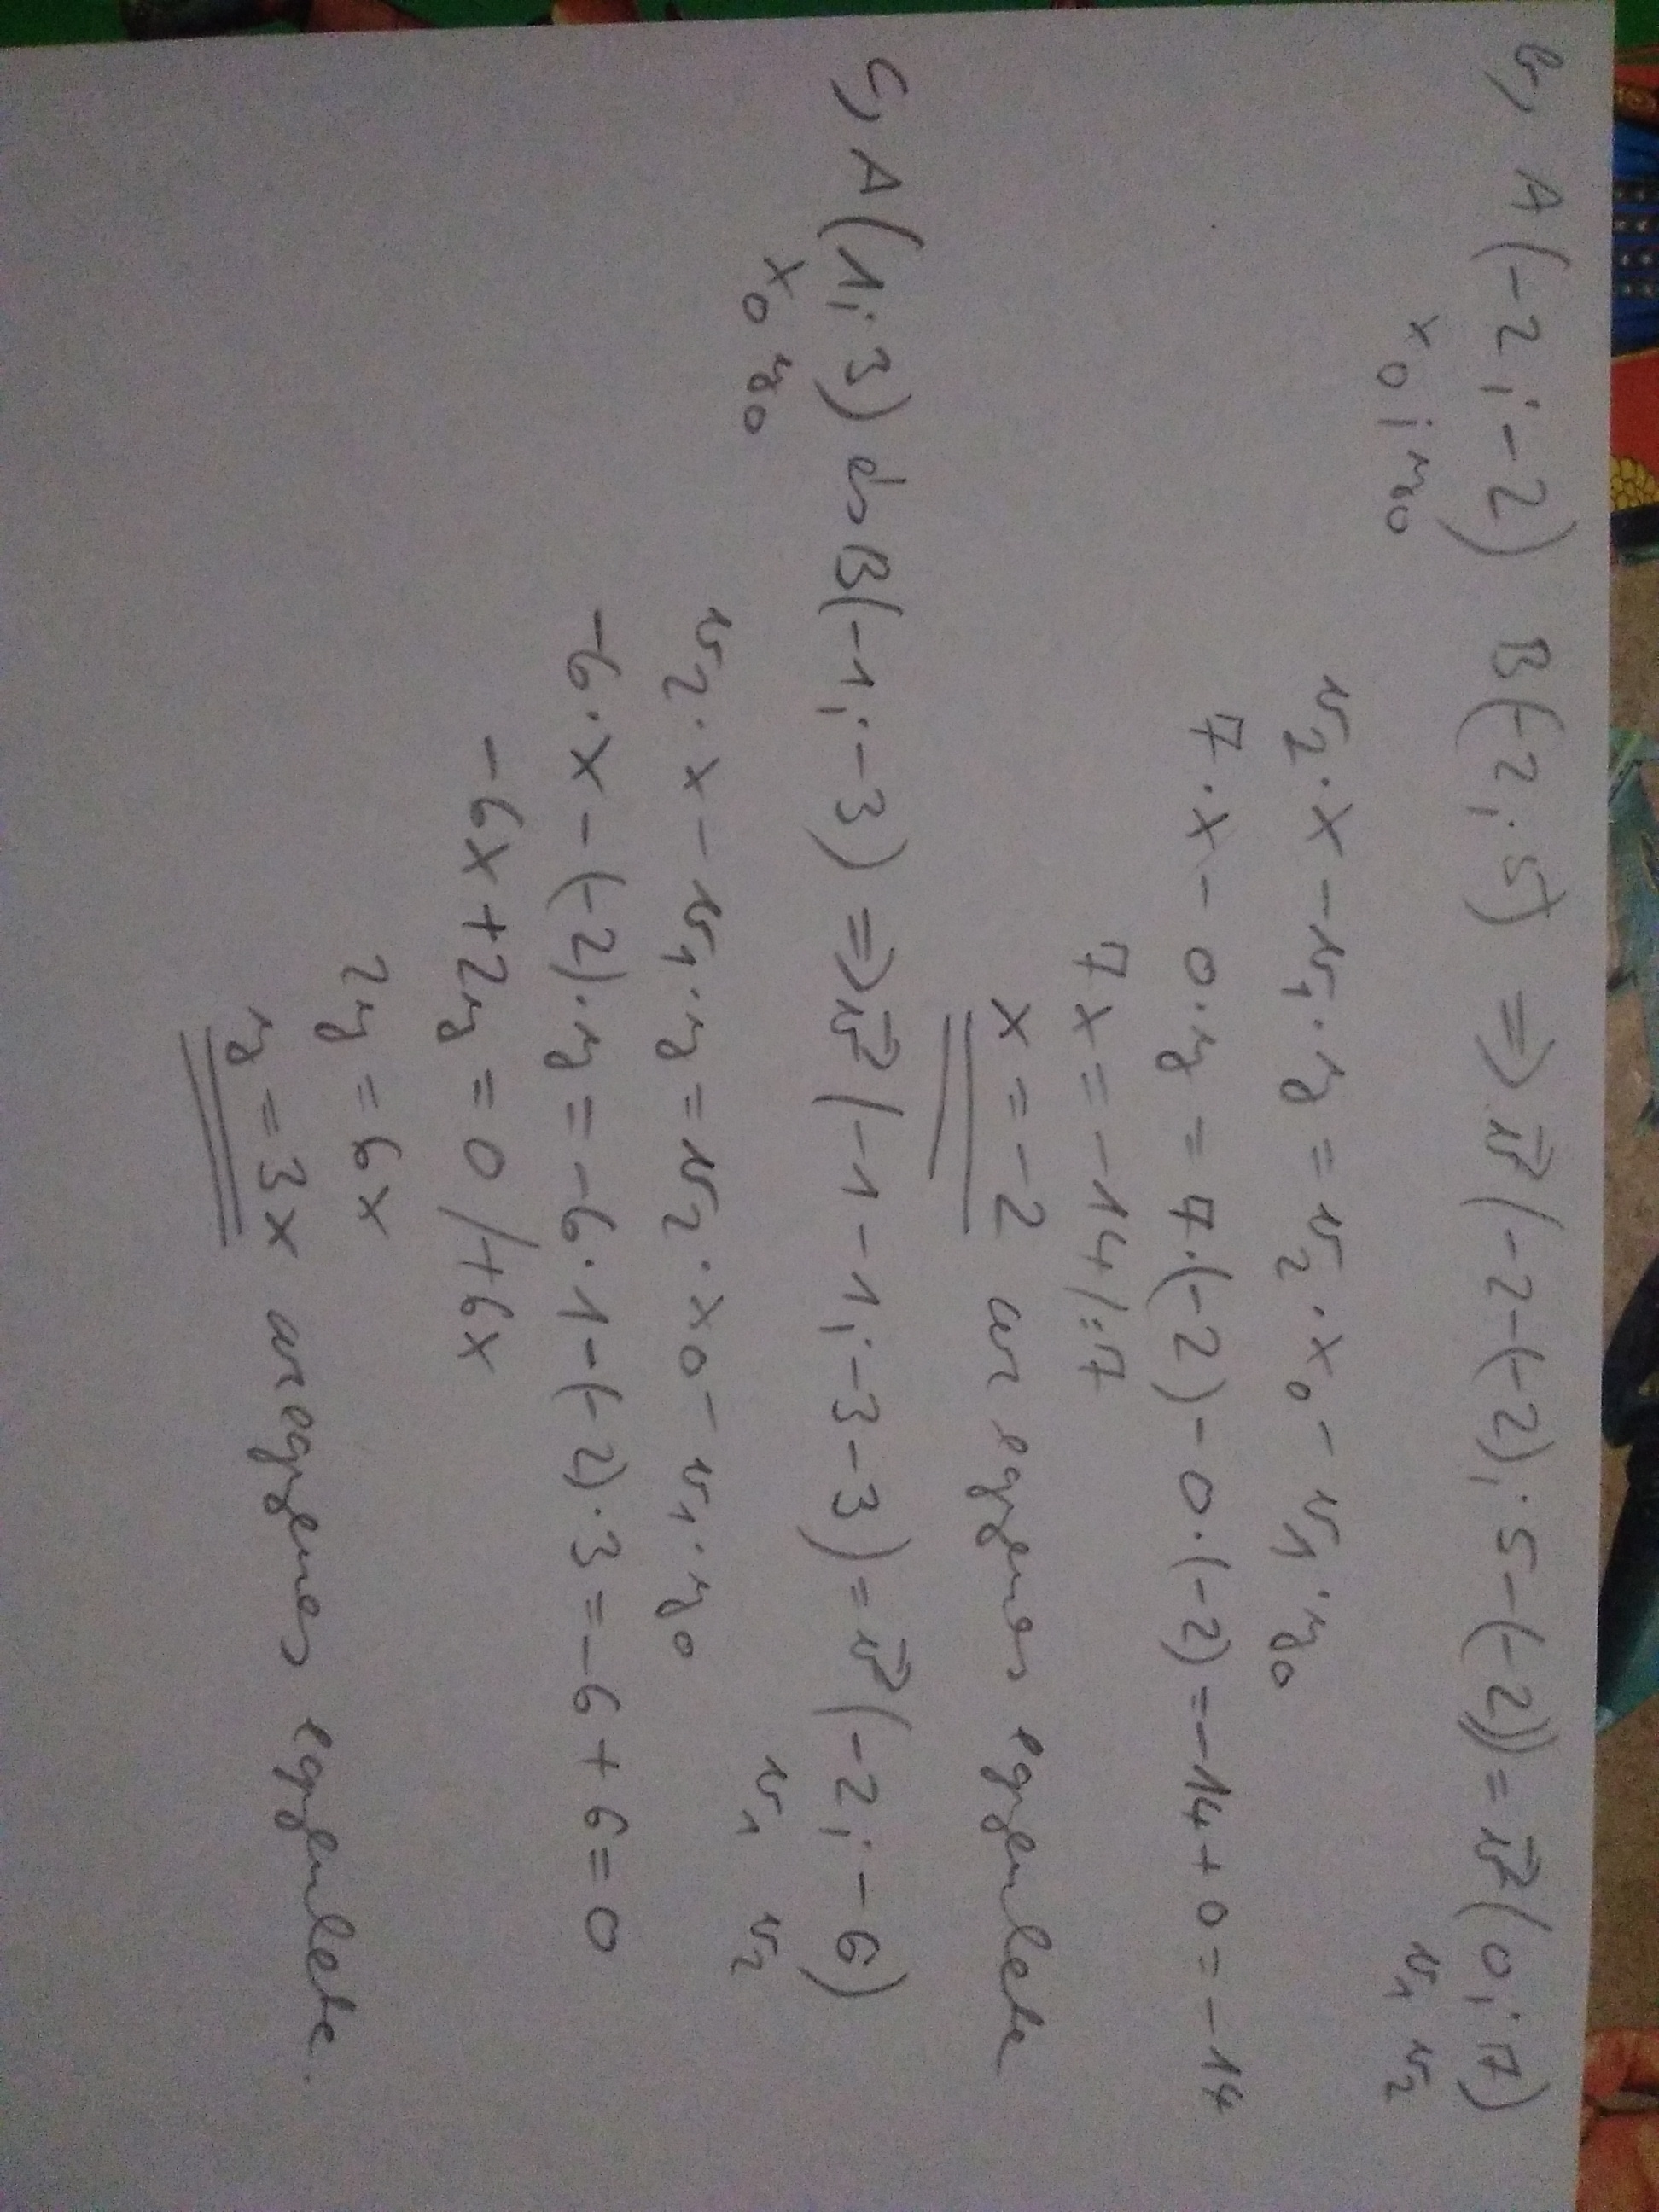 b, A(-2;-2) B(-2;5) => v⃗(-2-(-2);5-(-2)) = v⃗(0;7)
x0;y0 v1 v2
v2·x-v1·y=v2·x0-v1·y0
7·x-0·y=7·(-2)-0·(-2)=-14+0=-14
7x=-14/:7
x=-2 az egyenes egyenlete
c, A(1;3) és B(-1;-3) => v⃗(-1-1;-3-3)=v⃗(-2;-6)
x0 y0 v1 v2
v2·x-v1·y=v2·x0-v1·y0
-6·x-(-2)·y=-6·1-(-2)·3=-6+6=0
-6x+2y=0/+6x
2y=6x
y=3x az egyenes egyenlete.